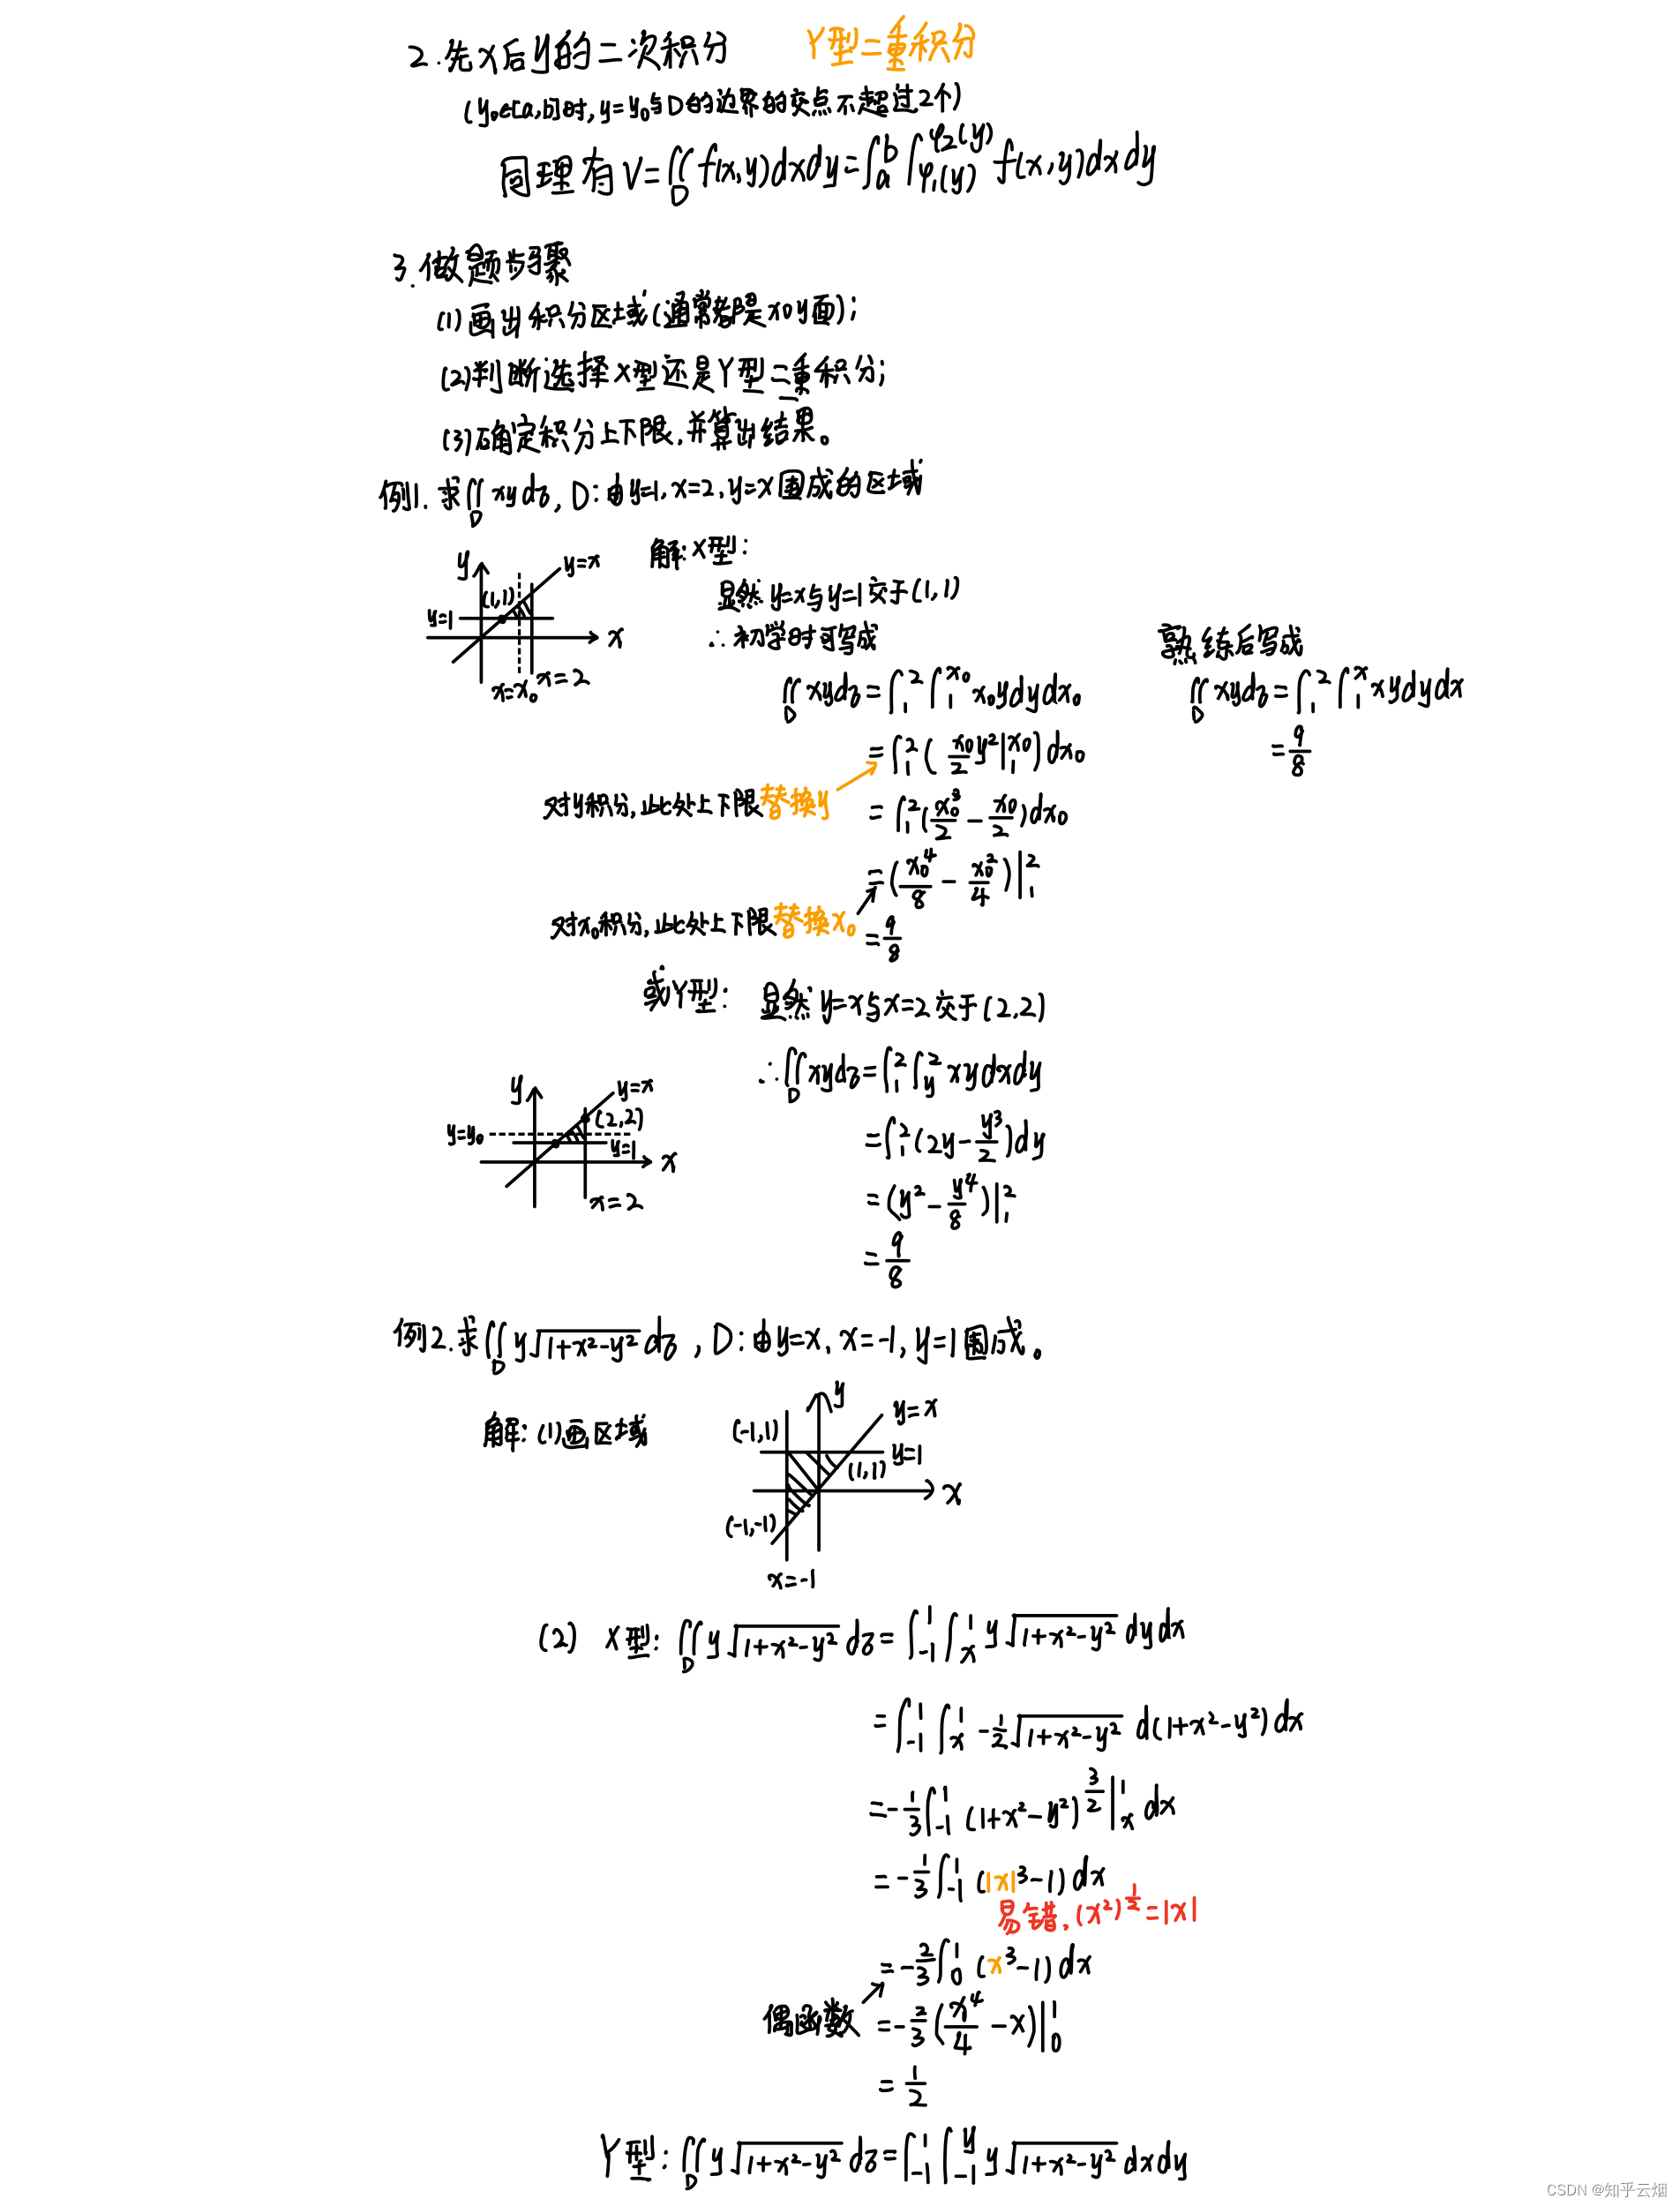 2.先x后y的二次积分 Y型二重积分
(y₀∈[a,b]时,y=y₀与D的边界的交点不超过2个)
同理有V=∬_D f(x,y)dxdy=∫_a^b ∫_{φ₁(y)}^{φ₂(y)} f(x,y)dxdy
3.做题步骤
(1)画出积分区域(通常都是xoy面);
(2)判断选择X型还是Y型二重积分;
(3)确定积分上下限,并算出结果。
例1.求∬_D xydσ,D:由y=1,x=2,y=x围成的区域
解:X型:
显然y=x与y=1交于(1,1)
∴初学时可写成 熟练后写成
y
y=x
(1,1)
y=1
x
x=x₀ x=2
∬_D xydσ=∫_1^2 ∫_1^{x₀} x₀ydydx₀ ∬_D xydσ=∫_1^2 ∫_1^x xydydx
=∫_1^2 (x₀/2 y²|_1^{x₀})dx₀ =9/8
对y积分,此处上下限替换y
=∫_1^2 (x₀³/2-x₀/2)dx₀
=(x₀⁴/8-x₀²/4)|_1^2
对x₀积分,此处上下限替换x₀
=9/8
或Y型: 显然y=x与x=2交于(2,2)
∴∬_D xydσ=∫_1^2 ∫_y^2 xydxdy
y
y=x
(2,2)
y=y₀
y=1
x
x=2
=∫_1^2 (2y-y³/2)dy
=(y²-y⁴/8)|_1^2
=9/8
例2.求∬_D y√(1+x²-y²)dσ,D:由y=x,x=-1,y=1围成。
解:(1)画区域
y
y=x
(-1,1)
y=1
(1,1)
x
(-1,-1)
x=-1
(2) X型:∬_D y√(1+x²-y²)dσ=∫_{-1}^1 ∫_x^1 y√(1+x²-y²)dydx
=∫_{-1}^1 ∫_x^1 -1/2√(1+x²-y²) d(1+x²-y²)dx
=-1/3∫_{-1}^1 (1+x²-y²)^{3/2}|_x^1 dx
=-1/3∫_{-1}^1 (|x|³-1)dx
易错,(x²)^{1/2}=|x|
=-2/3∫_0^1 (x³-1)dx
偶函数
=-2/3(x⁴/4-x)|_0^1
=1/2
Y型:∬_D y√(1+x²-y²)dσ=∫_{-1}^1 ∫_{-1}^y y√(1+x²-y²)dxdy
CSDN @知乎云烟